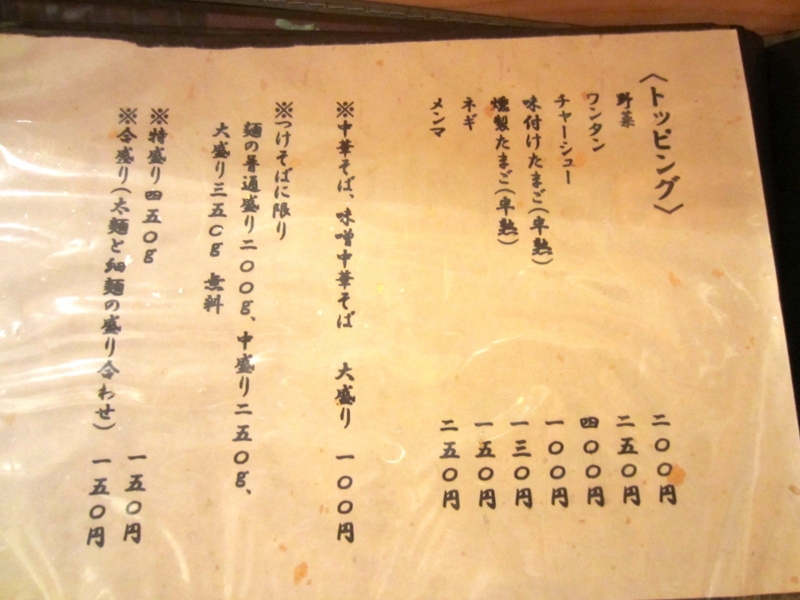 〈トッピング〉
野菜 二〇〇円
ワンタン 二五〇円
チャーシュー 四〇〇円
味付けたまご(半熟) 一〇〇円
燻製たまご(半熟) 一三〇円
ネギ 一五〇円
メンマ 二五〇円
※中華そば、味噌中華そば 大盛り 一〇〇円
※つけそばに限り
麺の普通盛り二〇〇g、中盛り二五〇g、
大盛り三五〇g 無料
※特盛り四五〇g 一五〇円
※合盛り(太麺と細麺の盛り合わせ) 一五〇円